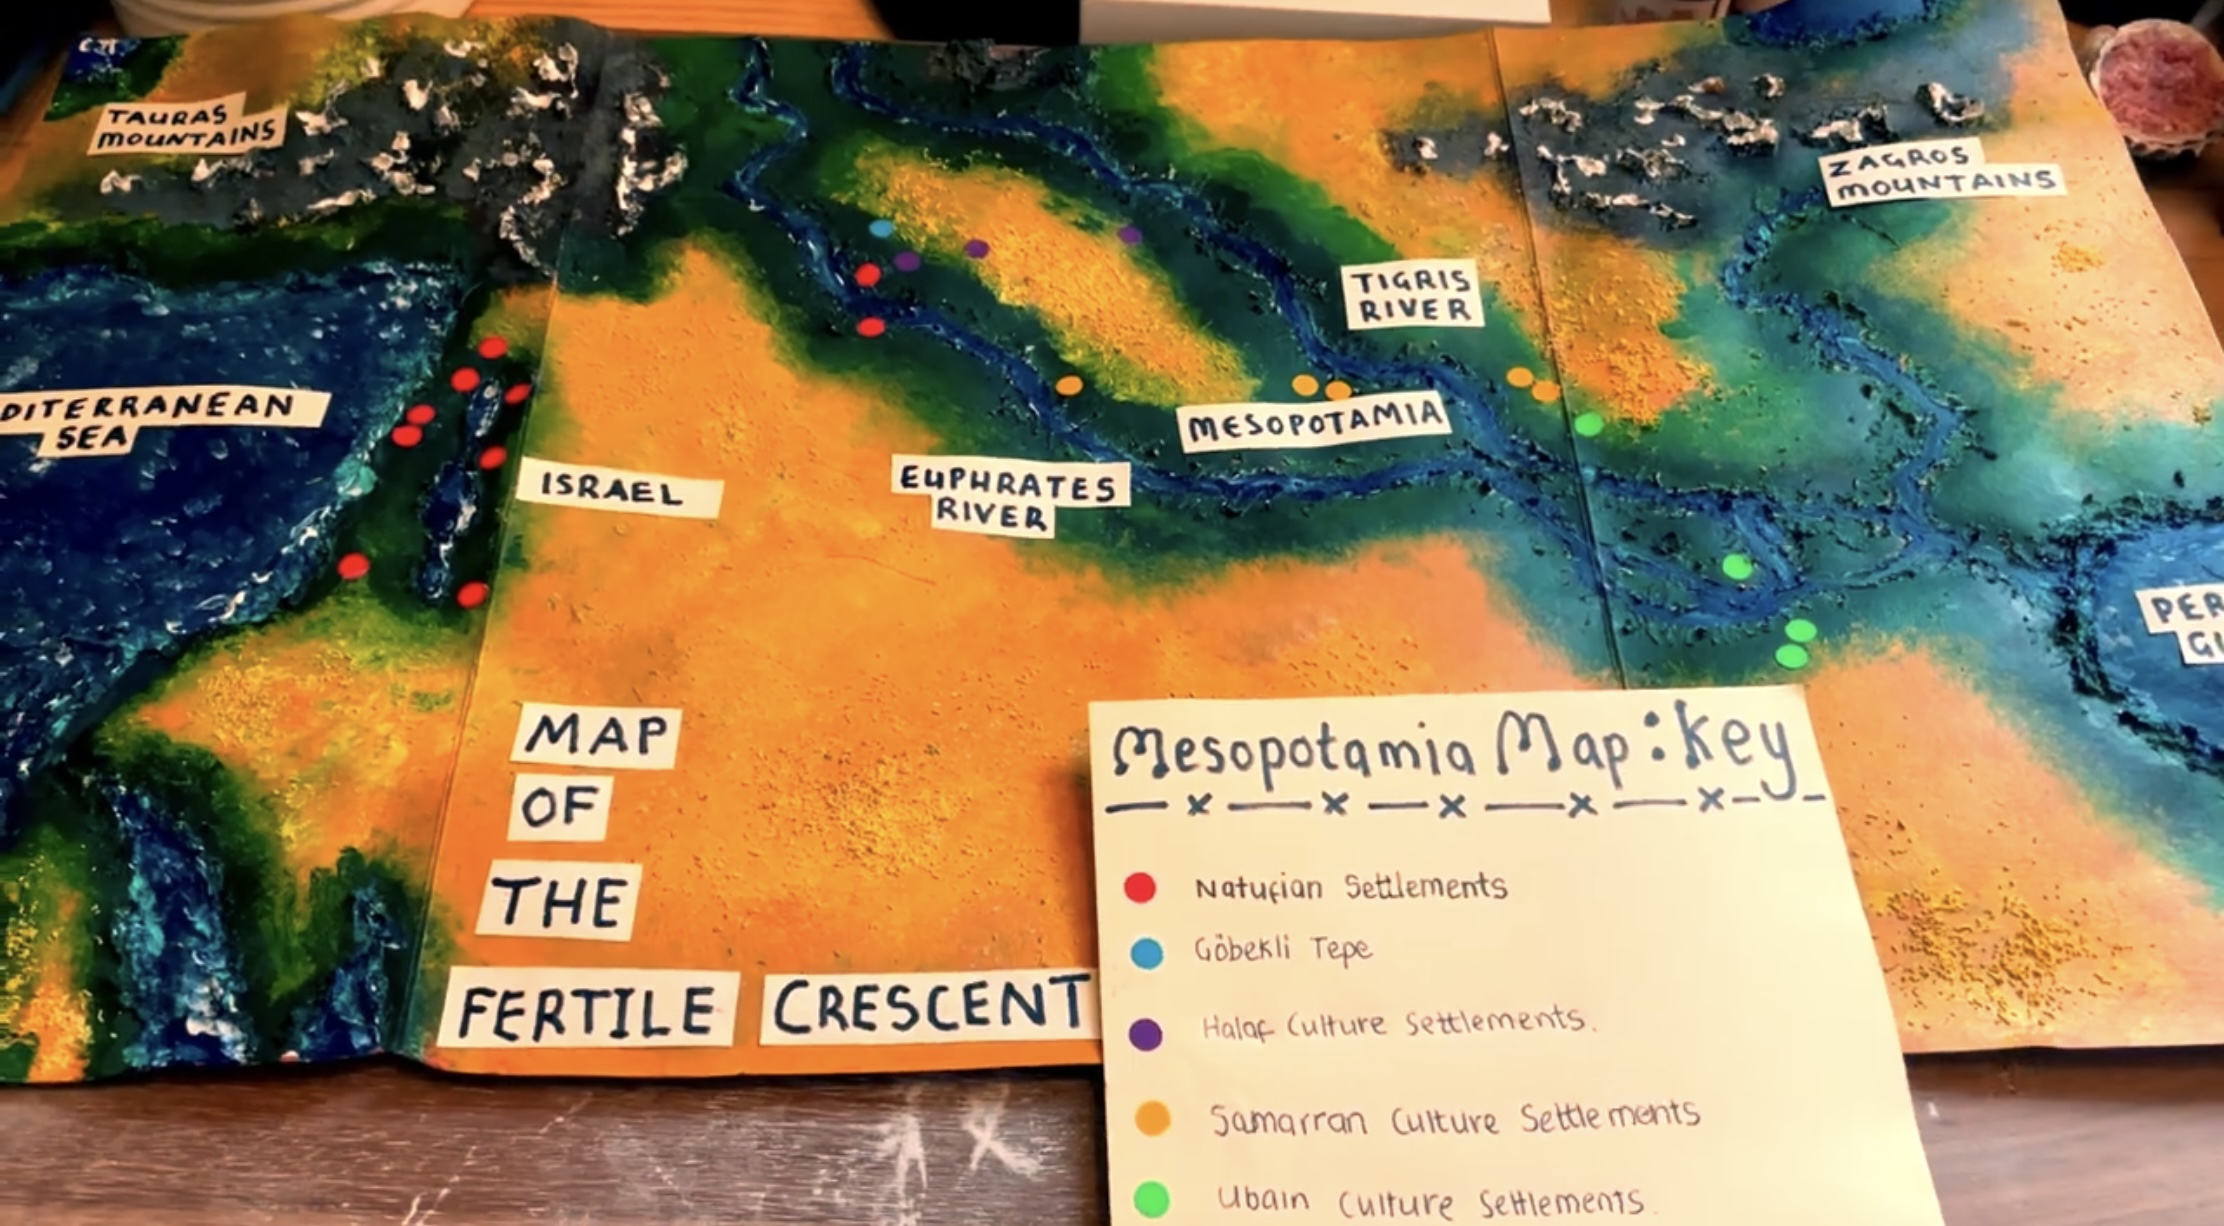 TAURAS
MOUNTAINS
ZAGROS
MOUNTAINS
TIGRIS
RIVER
DITERRANEAN
SEA
MESOPOTAMIA
ISRAEL
EUPHRATES
RIVER
PER
GU
MAP
OF
THE
FERTILE CRESCENT
Mesopotamia Map: Key
Natufian Settlements
Göbekli Tepe
Halaf Culture Settlements.
Samarran Culture Settlements
Ubain Culture Settlements.